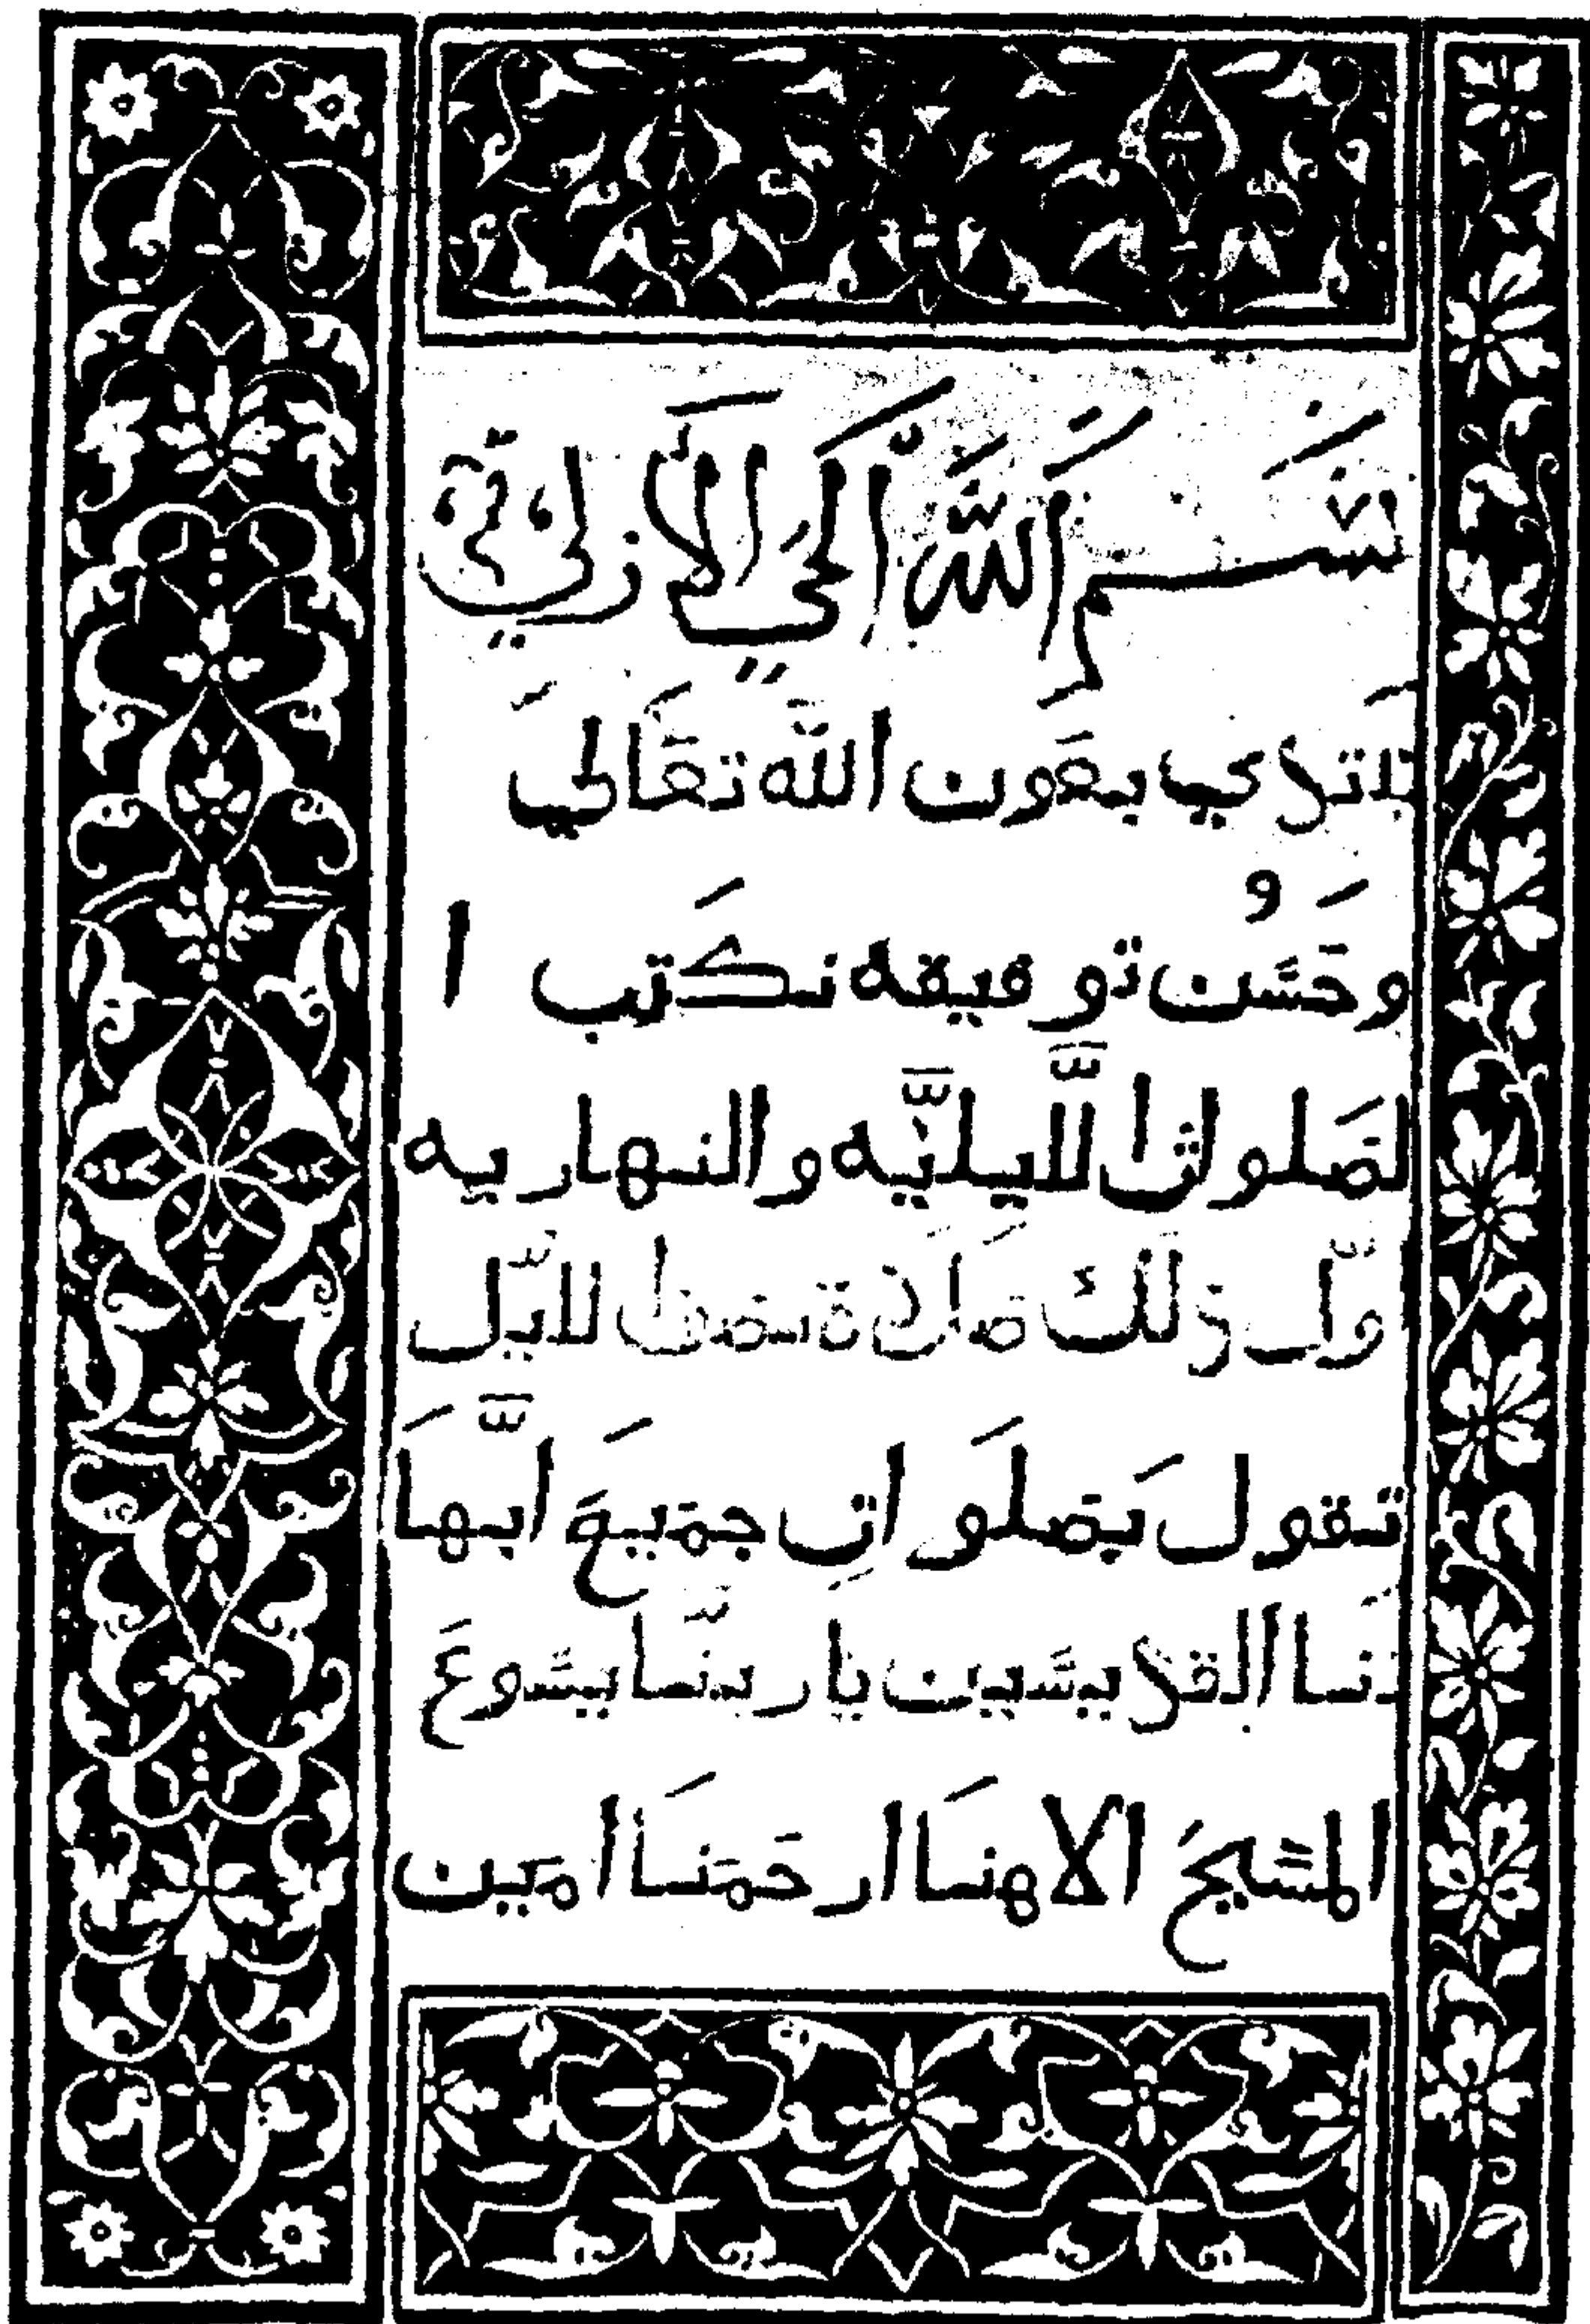 بسم الله الحي الازلي
نبتدي بعون الله تعالي
وحسن توفيقه نكتب ا
لصلوات الليليه والنهاريه
اول ذلك صلاة نصف الليل
تقول بصلوات جميع ابها
تنا القديسين يا ربنا يسوع
المسيح الاهنا ارحمنا امين